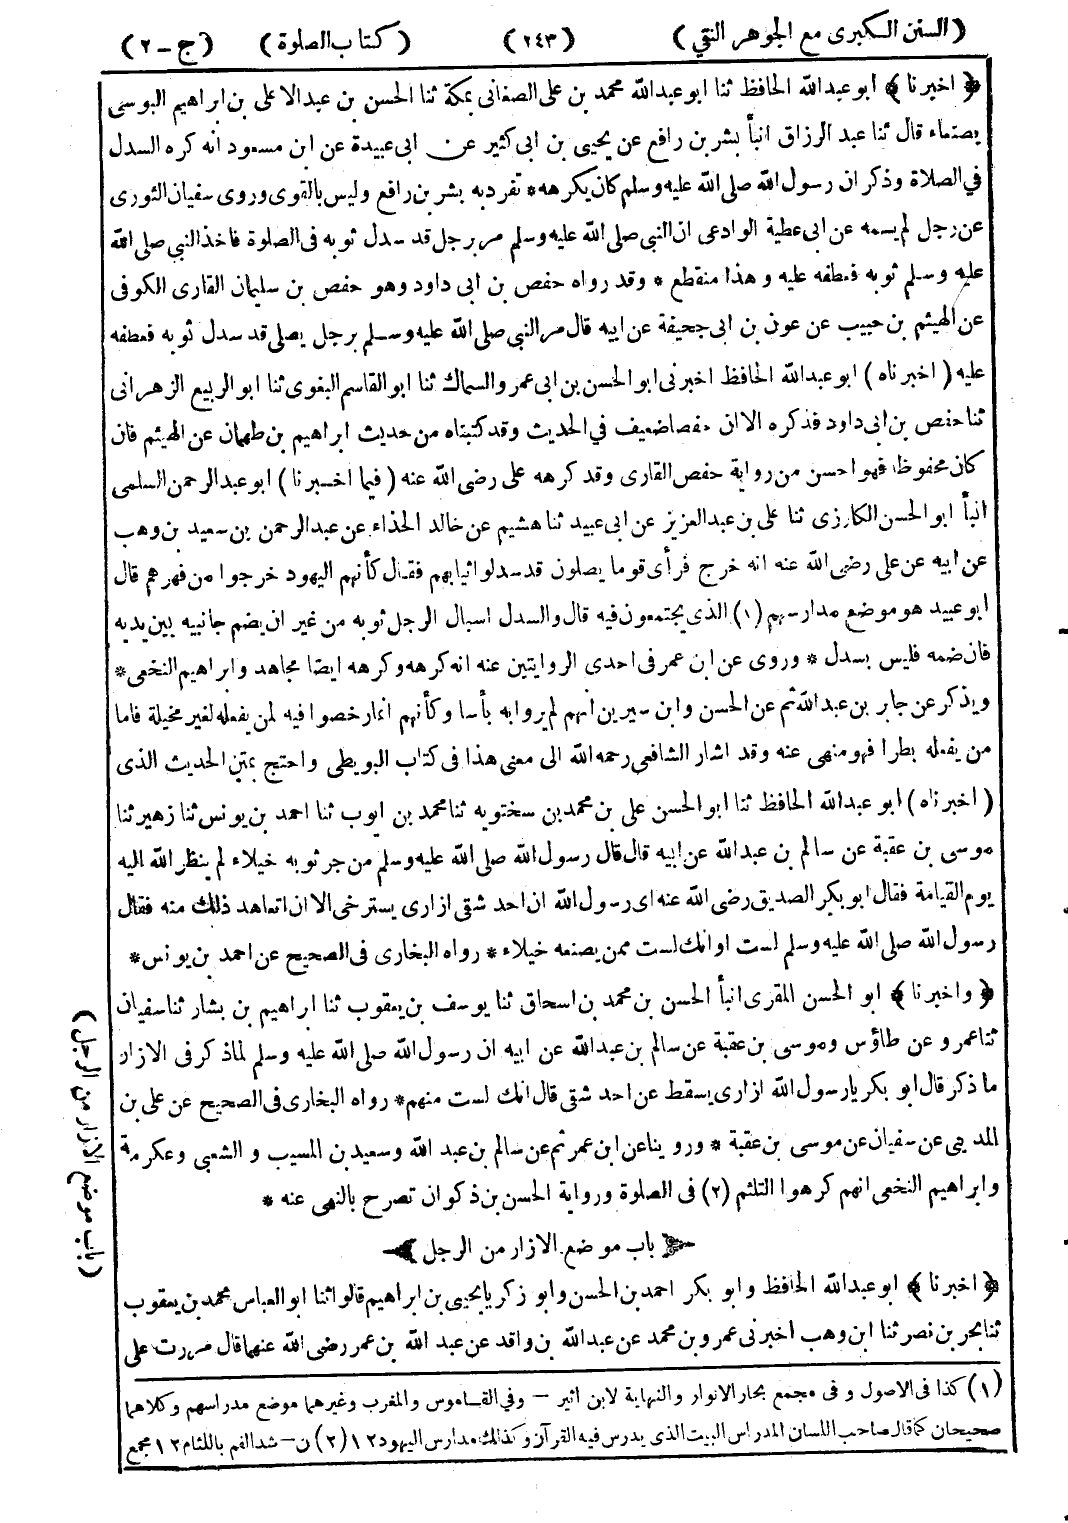 (السنن الكبرى مع الجوهر النقي) (٢٤٣) (كتاب الصلوة) (ج - ٢)
﴿اخبرنا﴾ ابوعبدالله الحافظ ثنا ابوعبدالله محمد بن على الصغانى بمكة ثنا الحسن بن عبدالاعلى بن ابراهيم البوسى
بصنعاء قال ثنا عبد الرزاق انبأ بشر بن رافع عن يحيى بن ابى كثير عن ابى عبيدة عن ابن مسعود انه كره السدل
فى الصلاة وذكر ان رسول الله صلى الله عليه وسلم كان يكرهه* تفرد به بشر بن رافع وليس بالقوى وروى سفيان الثورى
عن رجل لم يسمه عن ابى عطية الوادعى ان النبى صلى الله عليه وسلم مر برجل قد سدل ثوبه فى الصلوة فاخذ النبى صلى الله
عليه وسلم ثوبه فعطفه عليه وهذا منقطع * وقد رواه حفص بن ابى داود وهو حفص بن سليمان القارى الكوفى
عن الهيثم بن حبيب عن عون بن ابى جحيفة عن ابيه قال مر النبى صلى الله عليه وسلم برجل يصلى قد سدل ثوبه فعطفه
عليه (اخبرناه) ابوعبدالله الحافظ اخبرنى ابوالحسن بن ابى عمرو السماك ثنا ابوالقاسم البغوى ثنا ابو الربيع الزهرانى
ثنا حفص بن ابى داود فذكره الا ان حفصا ضعيف فى الحديث وقد كتبناه من حديث ابراهيم بن طهمان عن الهيثم فان
كان محفوظا فهو احسن من رواية حفص القارى وقد كرهه على رضى الله عنه (فيما اخبرنا) ابوعبدالرحمن السلمى
انبأ ابوالحسن الكارزى ثنا على بن عبدالعزيز عن ابى عبيد ثنا هشيم عن خالد الحذاء عن عبدالرحمن بن سعيد بن وهب
عن ابيه عن على رضى الله عنه انه خرج فرأى قوما يصلون قد سدلوا ثيابهم فقال كأنهم اليهود خرجوا من فهرهم قال
ابوعبيد هو موضع مدارسهم (١) الذى يجتمعون فيه قال والسدل اسبال الرجل ثوبه من غير ان يضم جانبيه بين يديه
فان ضمه فليس بسدل * وروى عن ابن عمر فى احدى الروايتين عنه انه كرهه وكرهه ايضا مجاهد وابراهيم النخعى*
ويذكر عن جابر بن عبدالله ثم عن الحسن وابن سيرين انهم لم يروا به بأسا وكأنهم انما رخصوا فيه لمن يفعله لغير مخيلة فاما
من يفعله بطرا فهو منهى عنه وقد اشار الشافعى رحمه الله الى معنى هذا فى كتاب البويطى واحتج بمتن الحديث الذى
(اخبرناه) ابو عبدالله الحافظ ثنا ابوالحسن على بن محمد بن سختويه ثنا محمد بن ايوب ثنا احمد بن يونس ثنا زهير ثنا
موسى بن عقبة عن سالم بن عبدالله عن ابيه قال قال رسول الله صلى الله عليه وسلم من جر ثوبه خيلاء لم ينظر الله اليه
يوم القيامة فقال ابوبكر الصديق رضى الله عنه اى رسول الله ان احد شقى ازارى يسترخى الا ان اتعاهد ذلك منه فقال
رسول الله صلى الله عليه وسلم لست او انك لست ممن يصنعه خيلاء * رواه البخارى فى الصحيح عن احمد بن يونس*
﴿واخبرنا﴾ ابو الحسن المقرى انبأ الحسن بن محمد بن اسحاق ثنا يوسف بن يعقوب ثنا ابراهيم بن بشار ثنا سفيان
ثنا عمرو عن طاؤس وموسى بن عقبة عن سالم بن عبدالله عن ابيه ان رسول الله صلى الله عليه وسلم لما ذكر فى الازار
ما ذكر قال ابو بكر يارسول الله ازارى يسقط عن احد شقى قال انك لست منهم* رواه البخارى فى الصحيح عن على بن
المدينى عن سفيان عن موسى بن عقبة * وروينا عن ابن عمر ثم عن سالم بن عبد الله وسعيد بن المسيب والشعبى وعكرمة
وابراهيم النخعى انهم كرهوا التلثم (٢) فى الصلوة ورواية الحسن بن ذكوان تصرح بالنهى عنه *
باب موضع الازار من الرجل
﴿اخبرنا﴾ ابوعبدالله الحافظ وابو بكر احمد بن الحسن وابو زكريا يحيى بن ابراهيم قالوا ثنا ابوالعباس محمد بن يعقوب
ثنا بحر بن نصر ثنا ابن وهب اخبرنى عمرو بن محمد عن عبدالله بن واقد عن عبد الله بن عمر رضى الله عنهما قال مررت على
(باب موضع الازار من الرجل)
(١) كذا فى الاصول وفى مجمع بحار الانوار والنهاية لابن اثير – وفى القاموس والمغرب وغيرهما موضع مدراسهم وكلاهما
صحيحان كما قال صاحب اللسان المدراس البيت الذى يدرس فيه القرآن وكذلك مدارس اليهود ١٢ (٢) ن – شد الفم باللثام ١٢ مجمع